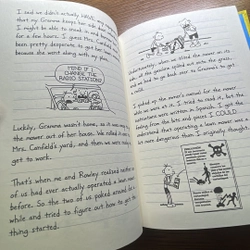 And we didn't actually HAVE any
that my Gramma keeps her side door
I might be able to sneak in and
for a few hours. I guess Mrs. Canfield
been pretty desperate to get her
because she went along with my plan.
MIND IF I
CHANGE THE
RADIO STATION?
Luckily, Gramma wasn't home, so it was easy
the mower out of her house. We rolled it
Mrs. Canfield's yard, and then we were
get to work.
That's when me and Rowley realized neither
of us had ever actually operated a
before. So the two of us poked around
while and tried to figure out how to get the
thing started.
Unfortunately, when we tilted the mower on its
side, all the gasoline spilled out onto the grass,
and we had to go back over to Gramma's to get
I picked up the owner's manual for the mower
while we were at it. I tried to read it, but the
instructions were written in Spanish. I got the
feeling from the bits and pieces I COULD
understand that operating a lawn mower was a
lot more dangerous than I originally thought.